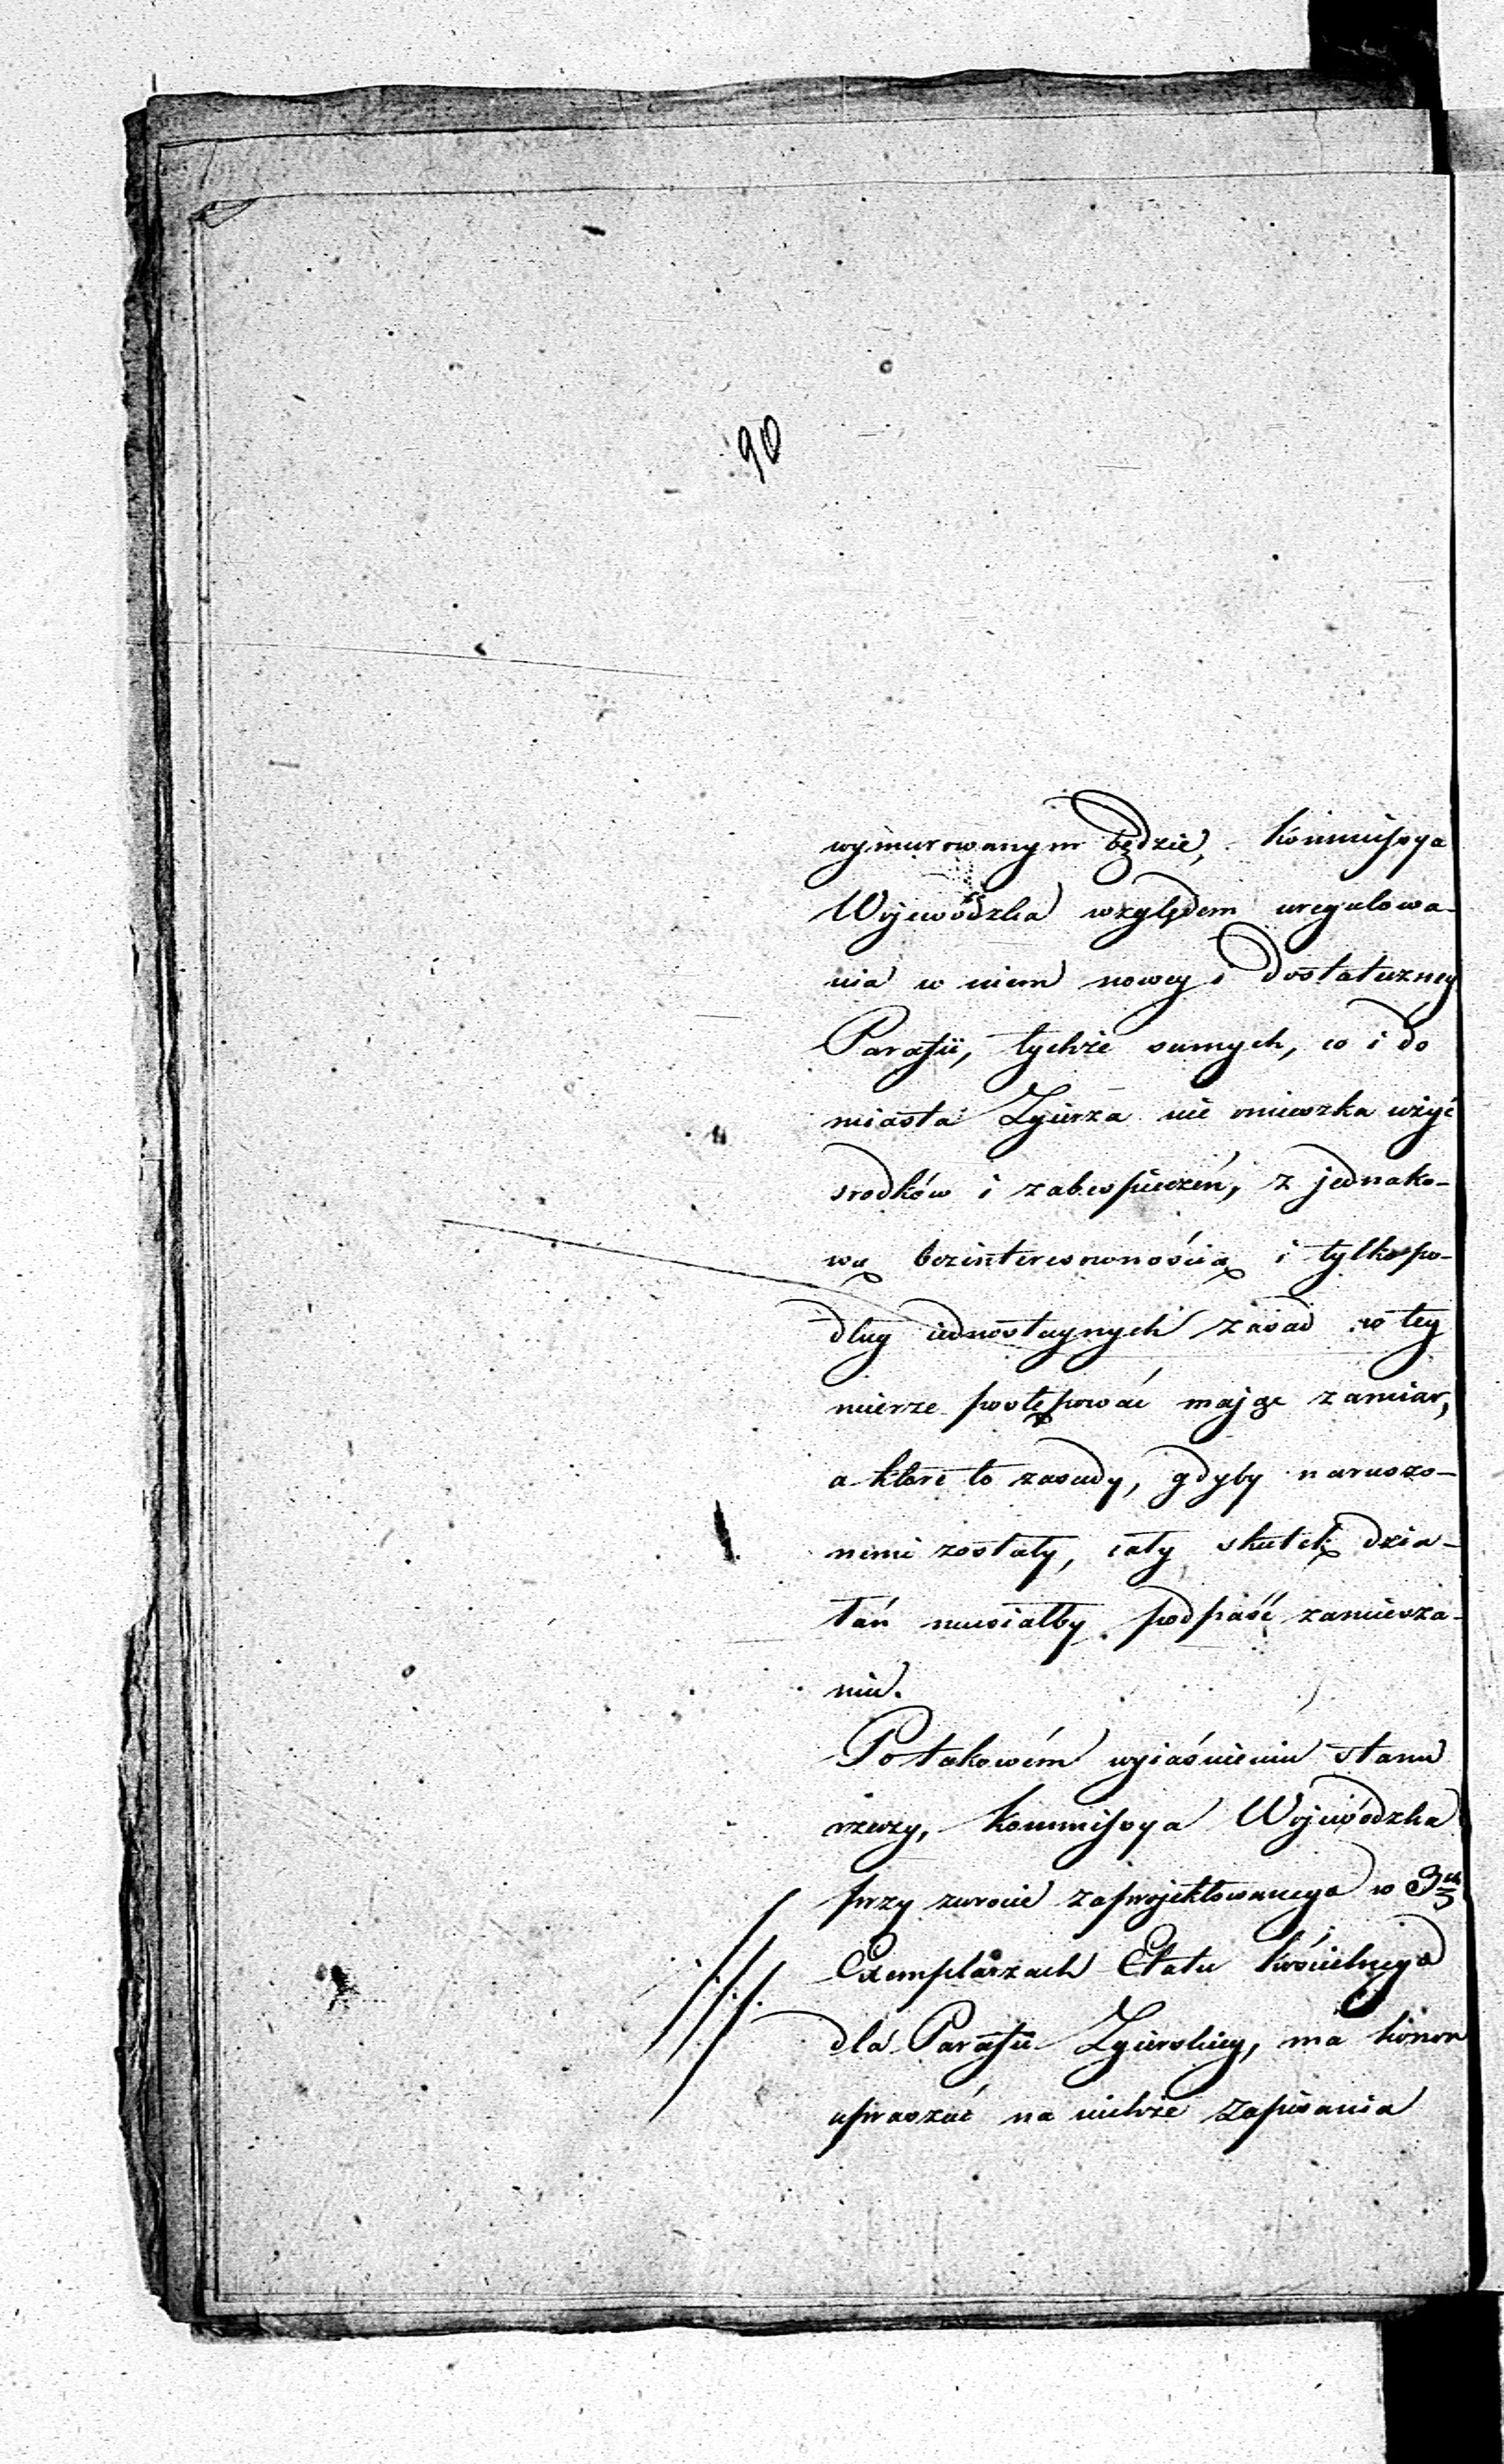 90
wymurowanym będzie, Kommissya
Wojewódzka względem uregulowa-
nia w niem nowey i dostateczney
Parafii, tychże samych, co i do
miasta Zgierza nie omieszka użyć
srodków i zabespieczeń, z jednako-
wą bezinteressownością i tylko po-
dług iednostaynych zasad w tey
mierze postępować mając zamiar,
a które to zasady, gdyby naruszo-
nemi zostały, cały skutek dzia-
łań musiałby podpaść zamiesza-
niu.
Po takowém wyiaśnieniu stanu
rzeczy, Kommissya Wojewódzka
przy zwrocie zaprojektowanego w 3ch
Exemplarzach Etatu kościelnego
dla Parafii Zgierskiey, ma honor
upraszać na nichże zapisania